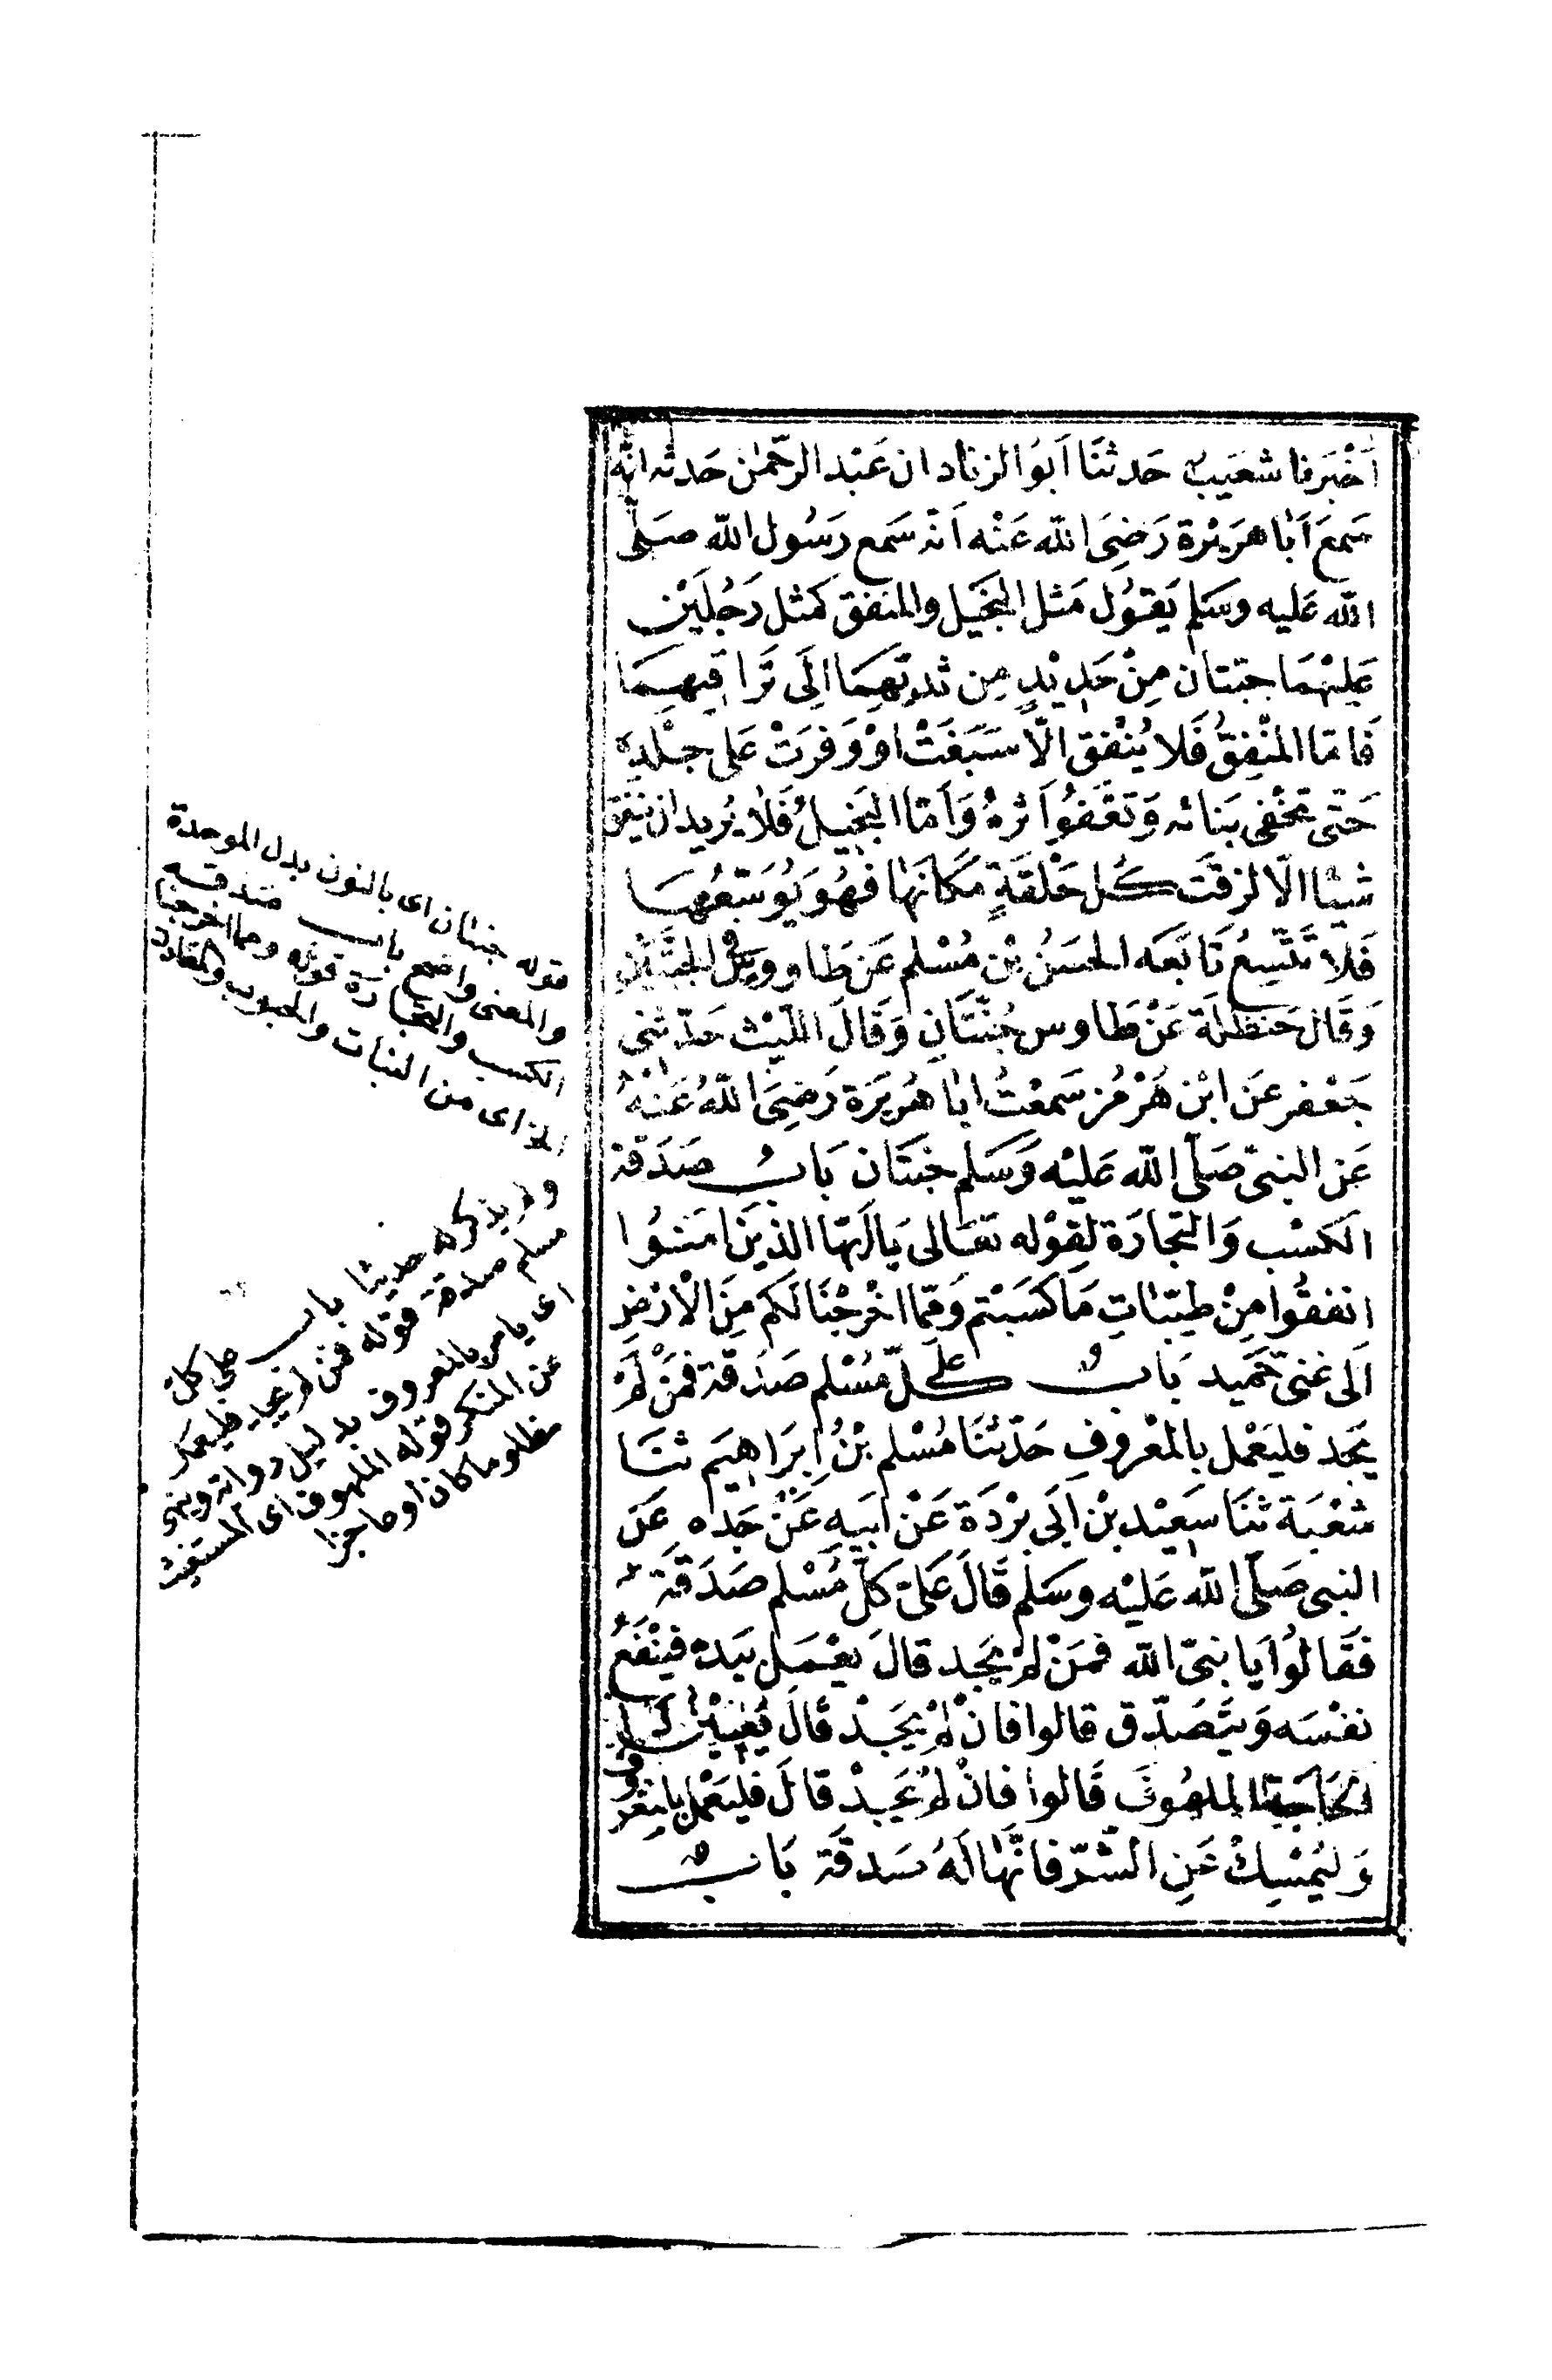 اَخْبَرنا شعَيب حَدثنَا اَبوُ الزناد ان عَبْد الرّحمٰن حَدثه انّه
سَمعَ اَبَا هرَيْرة رَضِيَ الله عَنْه اَنّه سَمع رَسُول الله صَلّى
الله عَليه وسَلم يَقوُل مَثل البَخيَل والمنفق كمَثل رَجُلَيْن
عَليْهمَا جبّتان مِنْ حَدِيْدٍ مِن ثديّهِمَا الِىَ تَراقيهِمَا
فَامّا المنْفِقُ فَلا يُنْفق الّا سَبَغَتْ اوْ وَفرَتْ عَلى جلْدِه
حَتّى تخْفى بَنانه وَتعَفوُا اَثرهُ وَاَمّا البَخيلُ فَلا يُريد ان ينفق
شيئا الّا لزقَت كُل حَلقَةٍ مَكانَهَا فَهُوَ يُوَسّعُهَا
فَلا تَتّسِعُ تَابَعَه الحسَنُ بْن مُسْلم عَن طَاووس في الجبَّتَيْن
وَقَال حَنظلَة عَنْ طَاوس جُنّتَانِ وَقَالَ اللّيْث حَدّثني
جَعْفر عَن ابْن هُرْمُز سَمعْتُ ابا هُريَرَة رَضِيَ اللهُ عَنْهُ
عَن النبيّ صَلّى الله عَليْه وَسَلم جنتَان بَابُ صَدَقة
الكسْب وَالتّجارَة لقِوْله تعَالى يَا اَيّهَا الذِينَ امَنوُا
انفقُوا مِنْ طيّبَاتِ مَا كسَبْتم وَمِمّا اخْرجْنَا لكم مِنَ الْارْضِ
اَلى غنيّ حَميد بَابٌ عَلى كلّ مُسْلم صَدَقة فمَنْ لَمْ
يَجد فليَعْمل بالمعْروفِ حَدّثنَا مُسْلم بْنُ اِبرَاهِيم ثنَا
شعْبَة ثنَا سَعِيْد بْن اَبى برْدَة عَنْ ابَيهِ عَنْ جَده عَن
النبى صَلّى الله عَليْه وسَلم قَالَ عَلىَ كلّ مُسْلم صَدَقَة
فقَالوُا يَا نبيّ الله فمَنْ لمْ يَجد قالَ يعْمَل بيَده فينْفَعُ
نفْسَه وَيتَصَدّق قالوا فانْ لمْ يَجَدْ قَالَ يُعِينُ ذا
الحَاجَة الملهُوفَ قَالوا فانْ لمْ يَجدْ قالَ فليَعْمَل بالمعْروف
وَليُمْسِكْ عَنِ الشّرّ فانّهَا لَهُ سَدقَة بَابٌ
قوله جنتان اى بالنون بدل الموحدة
والمعنى واضح باب صدقة
الكسب والتجارة قوله ومما اخرجنا
الخ اى من النبات والحبوب والمعادن
ولم يذكر له حديثا باب على كل
مسلم صدقة قوله فمن لم يجد فليعمل
اى يامر بالمعروف بدليل رواية وينهى
عن المنكر قوله الملهوف اى المستغيث
مظلوما كان او عاجزا